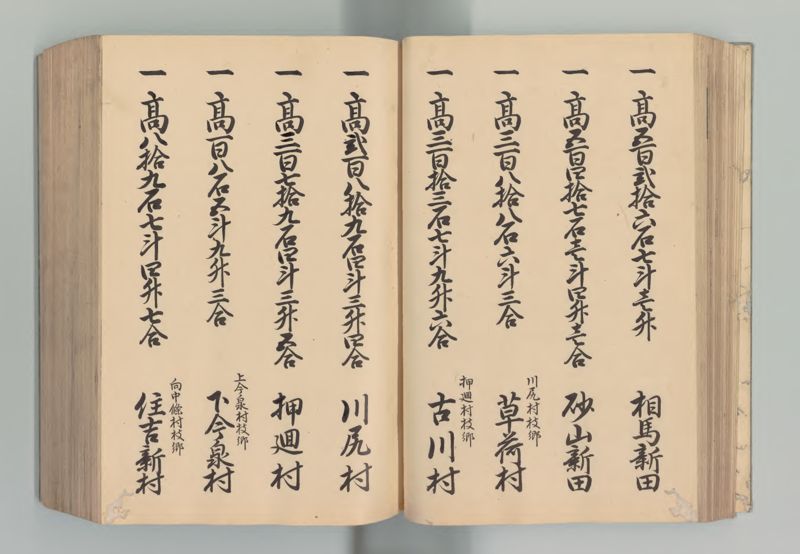 一 高五百弐拾六石七斗壱升 相馬新田
一 高五百四拾七石壱斗四升壱合 砂山新田
川尻村枝郷
一 高三百八拾八石六斗三合 草荷村
押廻村枝郷
一 高三百拾三石七斗九升六合 古川村
一 高弐百八拾九石四斗三升四合 川尻村
一 高三百七拾九石四斗三升五合 押廻村
上今泉村枝郷
一 高百八石五斗九升三合 下今泉村
向中條村枝郷
一 高八拾九石七斗四升七合 住吉新村